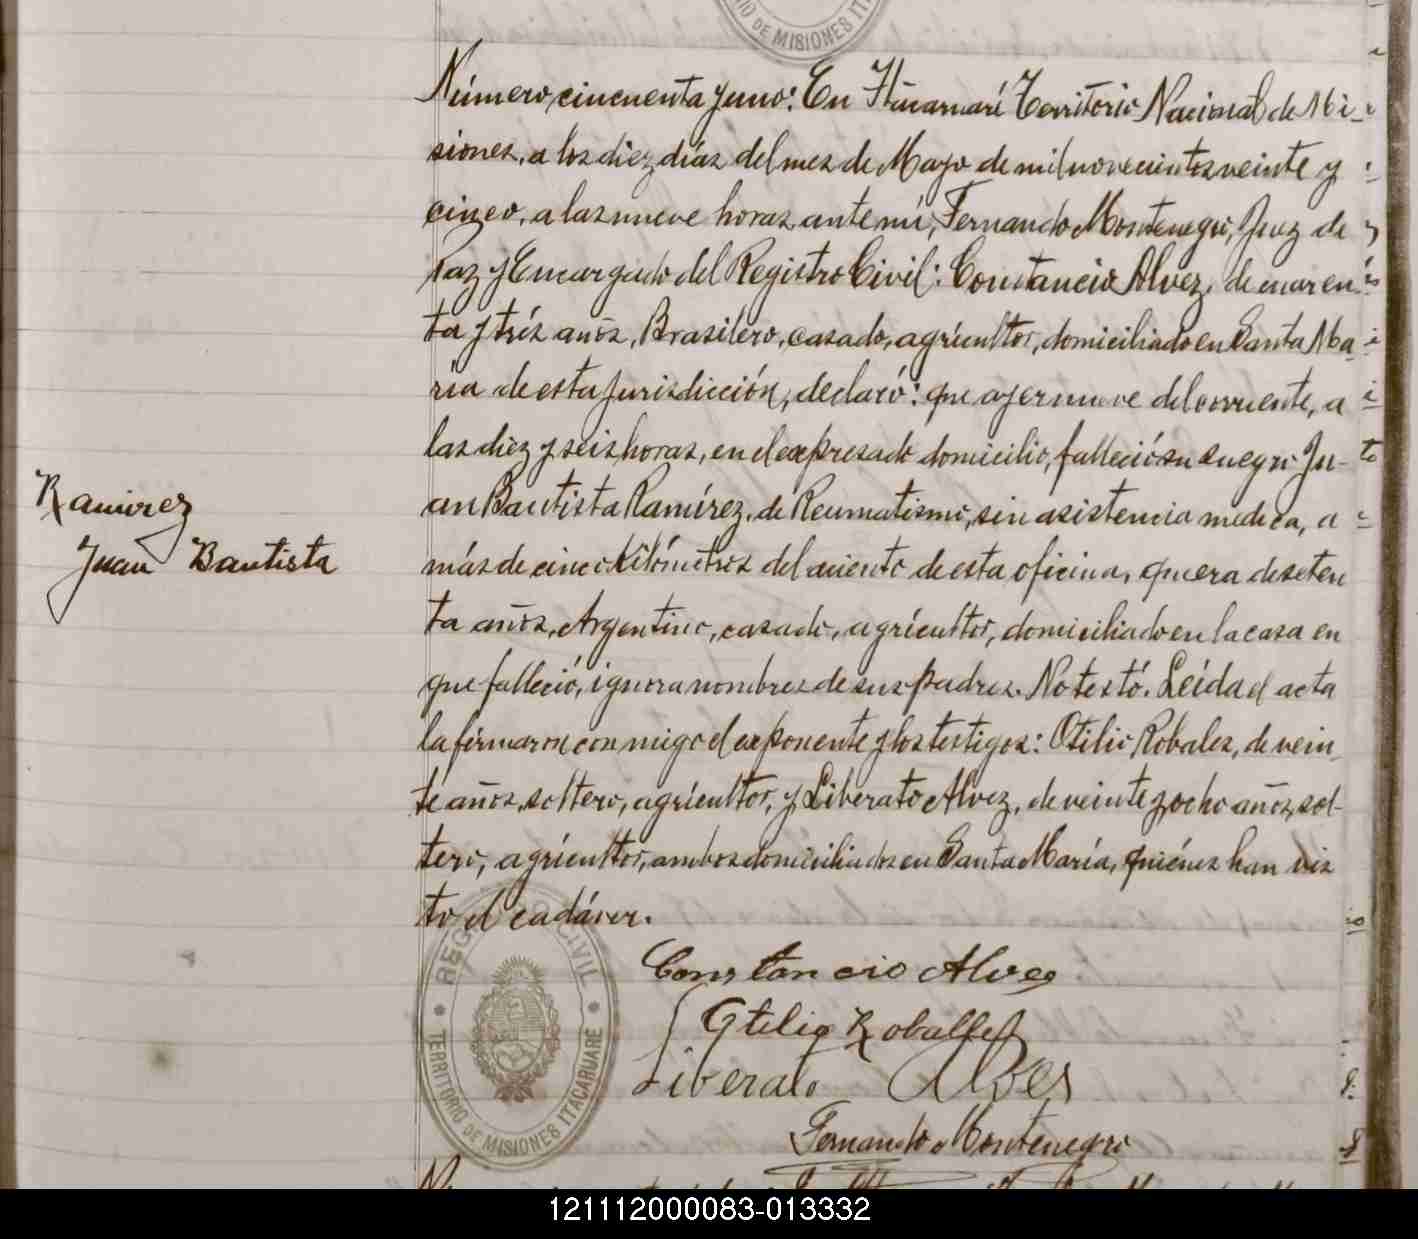 RIO DE MISIONES ITA
Número cincuenta y uno: En Itacaruaré Territorio Nacional de Mi-
siones, a los diez días del mes de Mayo de mil novecientos veinte y
cinco, a las nueve horas, ante mí, Fernando Montenegro, Juez de
Paz y Encargado del Registro Civil: Constancio Alvez, de cuaren-
ta y trés años, Brasilero, casado, agrícultor, domiciliado en Santa Ma-
ría de esta Jurisdicción, declaró: que ayer nueve del corriente, a
las diez y seis horas, en el expresado domicilio, falleció su suegro Ju-
an Bautista Ramírez, de Reumatismo, sin asistencia medica, a
más de cinco kilómetros del asiento de esta oficina, que era de seten
ta años, Argentino, casado, agrícultor, domiciliado en la casa en
que falleció, ignora nombres de sus padres. No testó. Leída el acta
la firmaron con migo el exponente y los testigos: Otilio Robales, de vein
te años, soltero, agrícultor, y Liberato Alvez, de veinte y ocho años, sol-
tero, agrícultor, ambos domiciliados en Santa María, quiénes han vis
to el cadáver.
Ramirez
Juan Bautista
Constancio Alves
Otilio Roballes
Liberato Alves
Fernando Montenegro
REGISTRO CIVIL
TERRITORIO DE MISIONES ITACARUARE
121112000083-013332